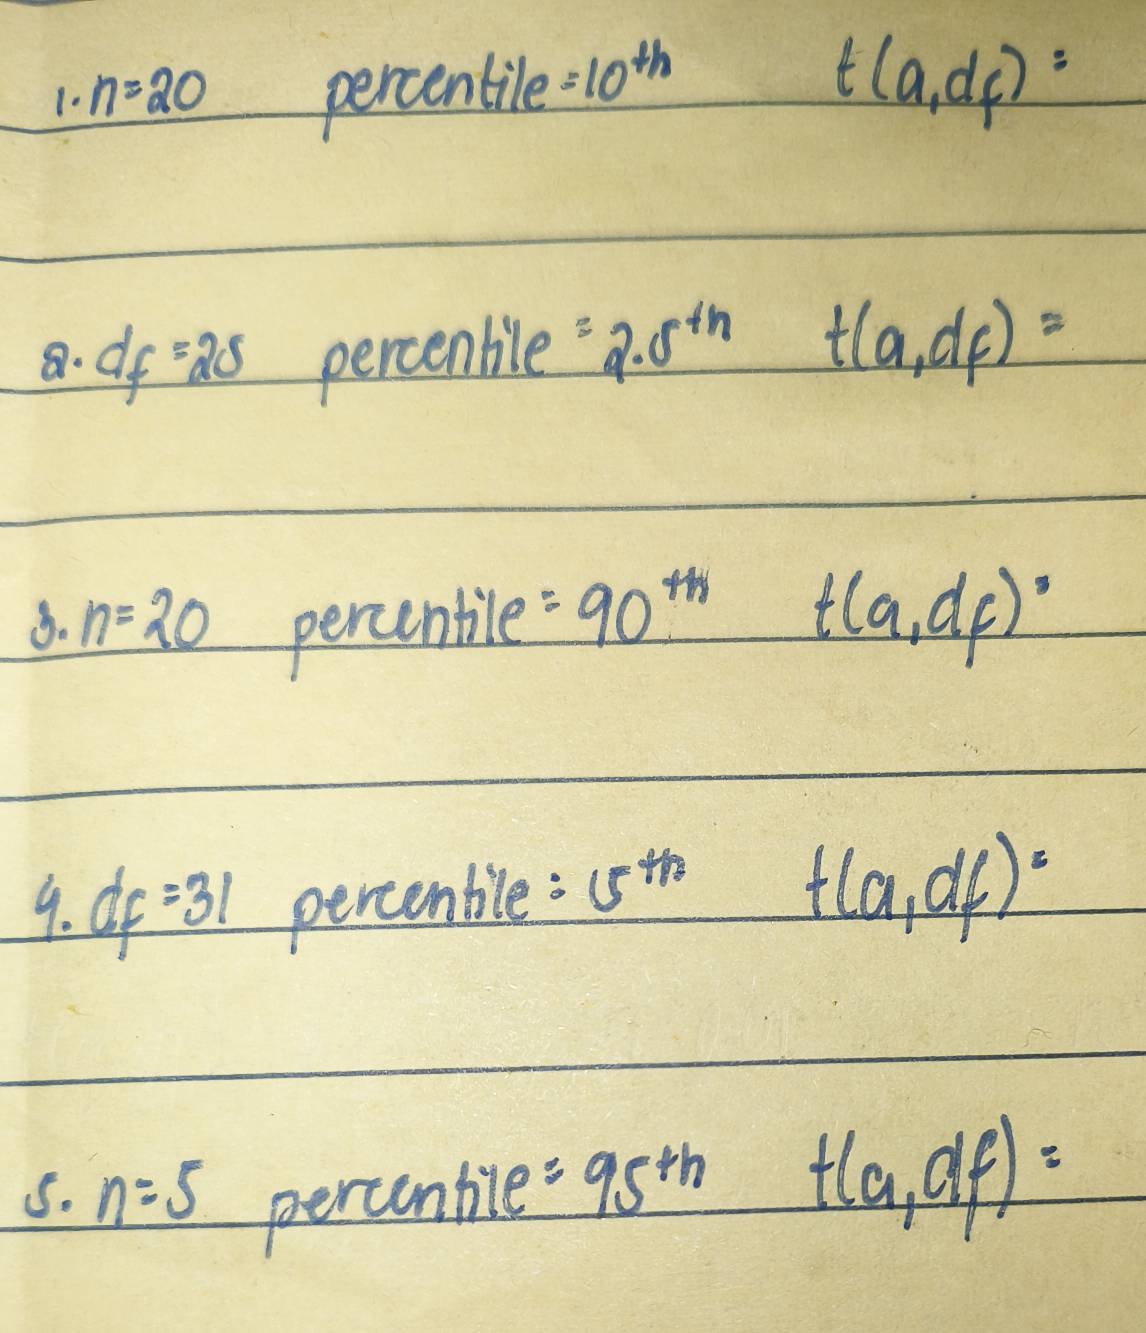 1. n=20 percentile=10th t(a,df)=
2. df=25 percentile=2.5th t(a,df)=
3. n=20 percentile=90th t(a,df)=
4. df=31 percentile=5th t(a,df)=
5. n=5 percentile=95th t(a,df)=